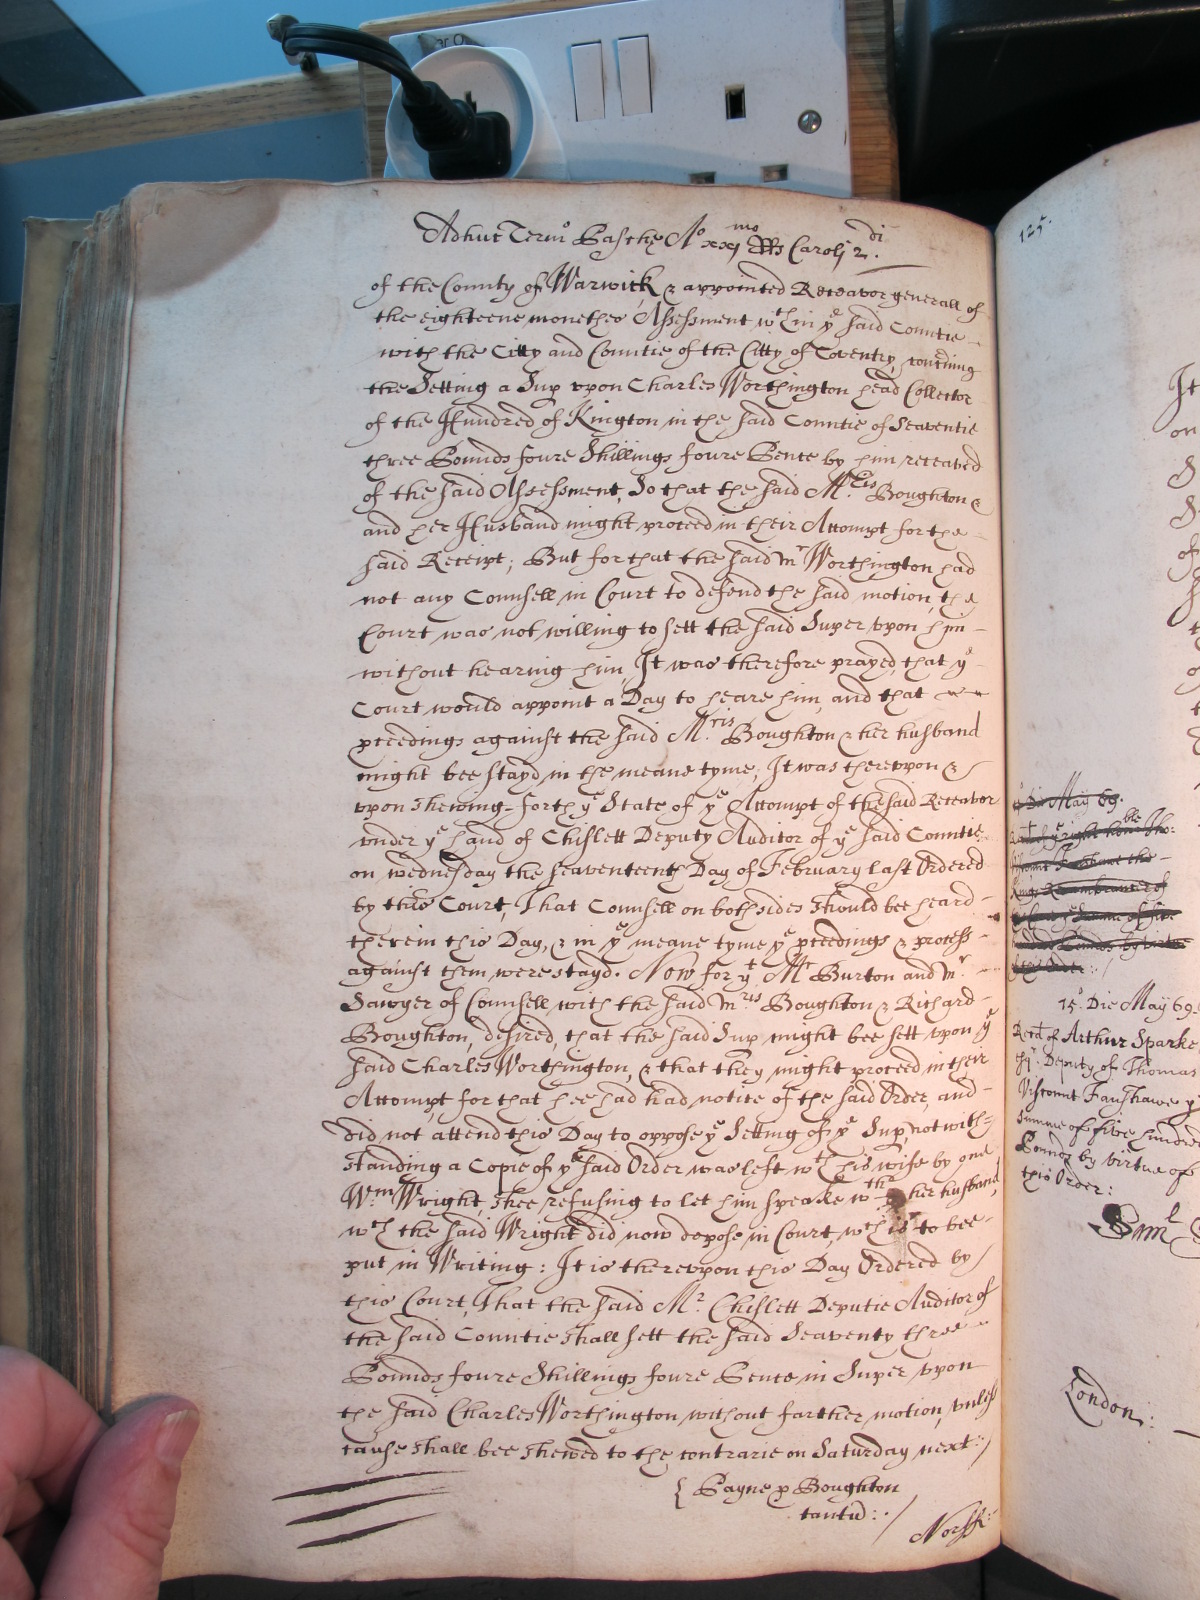 Adhuc Termo Pasche Ao xxjmo RRs Caroli 2di.
of the County of Warwick & appointed Receavor generall of
the eighteene monethes Assessment wth in ye said Countie
with the Citty and Countie of the Citty of Coventry, concning
the Setting a Sup vpon Charles Worthington head Collector
of the Hundred of Kington in the said Countie of Seaventie
three Pounds foure Shillings foure Pence by him receaved
of the said Assessment, So that the said Mris Boughton &
and her Husband might proceed in their Attempt for the
said Receipt; But for that the said Mr Worthington had
not any Counsell in Court to defend the said motion, the
Court was not willing to sett the said Super vpon him
without hearing him, It was therefore prayed, that ye
Court would appoint a Day to heare him, and that
pceedings against the said Mris Boughton & her husband
might bee stayd in the meane tyme; It was therevpon &
vpon shewing forth ye State of ye Attempt of the said Receavor
vnder ye hand of Chislett Deputy Auditor of ye said Countie
on wednesday the seaventeenth Day of February last Ordered
by this Court, That Counsell on both sides should bee heard
therein this Day, & in ye meane tyme ye pceedings & process
against them were stayd. Now for yt Mr Burton and Mr
Sawyer of Counsell with the said Mris Boughton & Richard
Boughton, desired, that the said Sup might bee sett vpon ye
said Charles Worthington, & that they might proceed in their
Attempt, for that hee had had notice of the said Order, and
did not attend this Day to oppose ye Setting of ye Sup, notwith=
standing a Copie of ye said Order was left wth his wife by one
Wm Wright, shee refusing to let him speake wth her husband,
wch the said Wright did now depose in Court, wch is to bee
put in Writing: It is therevpon this Day Ordered by
this Court, That the said Mr. Chislett Deputie Auditor of
the said Countie shall sett the said Seaventy three
Pounds foure Shillings foure Pence in Super vpon
the said Charles Worthington without farther motion, vnless
cause shall bee shewed to the contrarie on Saturday next:
{ Payne p Boughton
tantu:
Norff:
125.
Die May 69.
ye right hoble Tho:
the
Kings Remembrancer of
ye Summe of five
by virtue
this Order:
15o Die May 69
Recd of Arthur Sparke
Deputy of Thomas
Viscount Fanshawe ye
Summe of five hundred
Pounds by virtue of
this Order:
Saml
London: